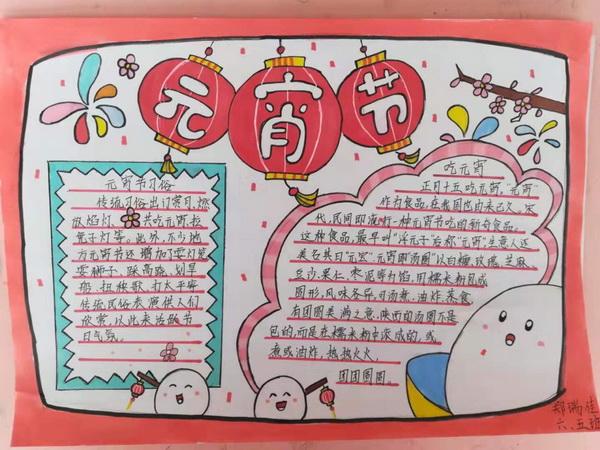 元宵节
元宵节习俗
传统习俗出门赏月、燃
放焰灯、共吃元宵、拉
兔子灯等。此外，不少地
方元宵节还增加了耍灯耍
耍狮子、踩高跷、划旱
船、扭秧歌、打太平
传统民俗表演供人们
欣赏，以此来活跃节
日气氛。
吃元宵
正月十五吃元宵，"元宵"
作为食品，在我国也由来已久。宋
代，民间即流行一种元宵节吃的新奇食品。
这种食品，最早叫"浮元子"后称"元宵"生意人还
美名其曰"元宝"。元宵即"汤圆"以白糖、玫瑰、芝麻
豆沙、果仁、枣泥等为馅，用糯米粉包成
圆形，风味各异，可汤煮、油炸、蒸食，
有团圆美满之意。陕西的汤圆不是
包的，而是在糯米粉中滚成的，或
煮或油炸，热热火火，
团团圆圆。
郑瑞佳
六、五班